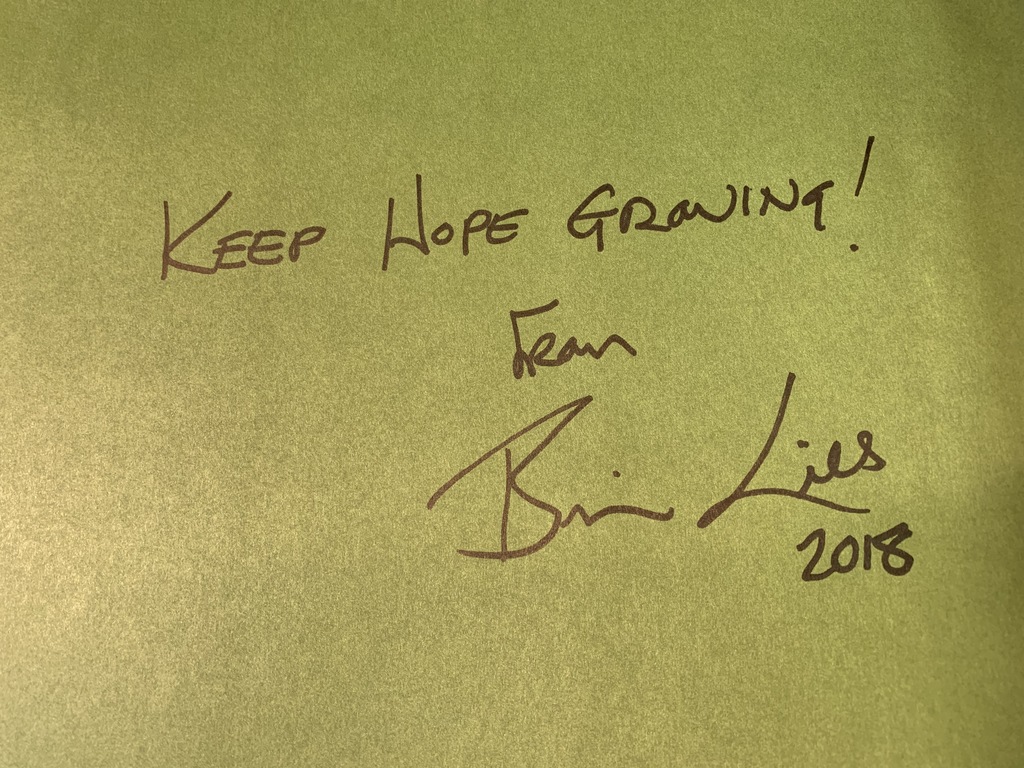 KEEP HOPE GROWING!
From
Brian Lies
2018